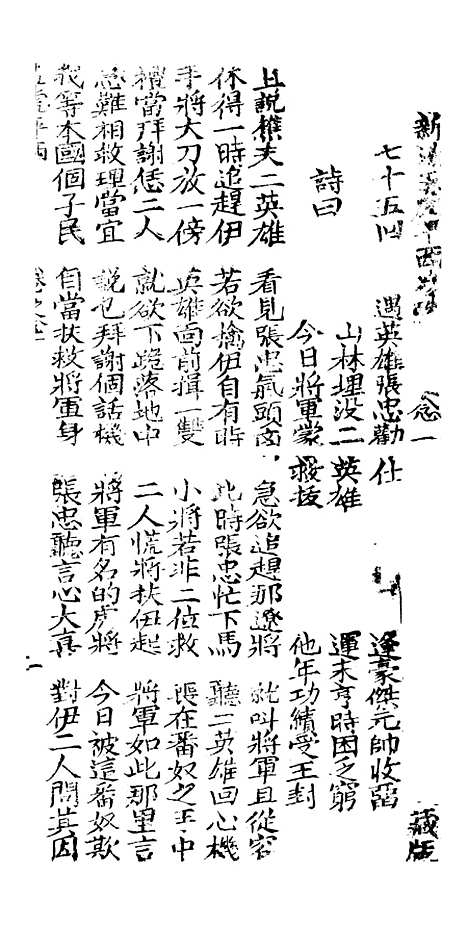 新造五虎平西 念一 藏版
七十五回 遇英雄張忠勸仕 逢豪傑元帥收留
山林埋没二英雄 運未亨時困乏窮
詩曰
今日將軍蒙救拔 他年功績受王封
且説樵夫二英雄 看見張忠氣頭高 急欲追趕那遼將 就叫將軍且從容
休得一時追趕伊 若欲擒伊自有時 此時張忠忙下馬 聽二英雄回心機
手將大刀放一傍 英雄面前揖一雙 小將若非二位救 喪在番奴之手中
禮當拜謝恁二人 就欲下跪落地中 二人慌將扶伊起 將軍如此那里言
急難相救理當宜 説乜拜謝個話機 將軍有名的虎將 今日被這番奴欺
我等本國個子民 自當扶救將軍身 張忠聽言心大喜 對伊二人問其因
五虎平西 卷之念一 一